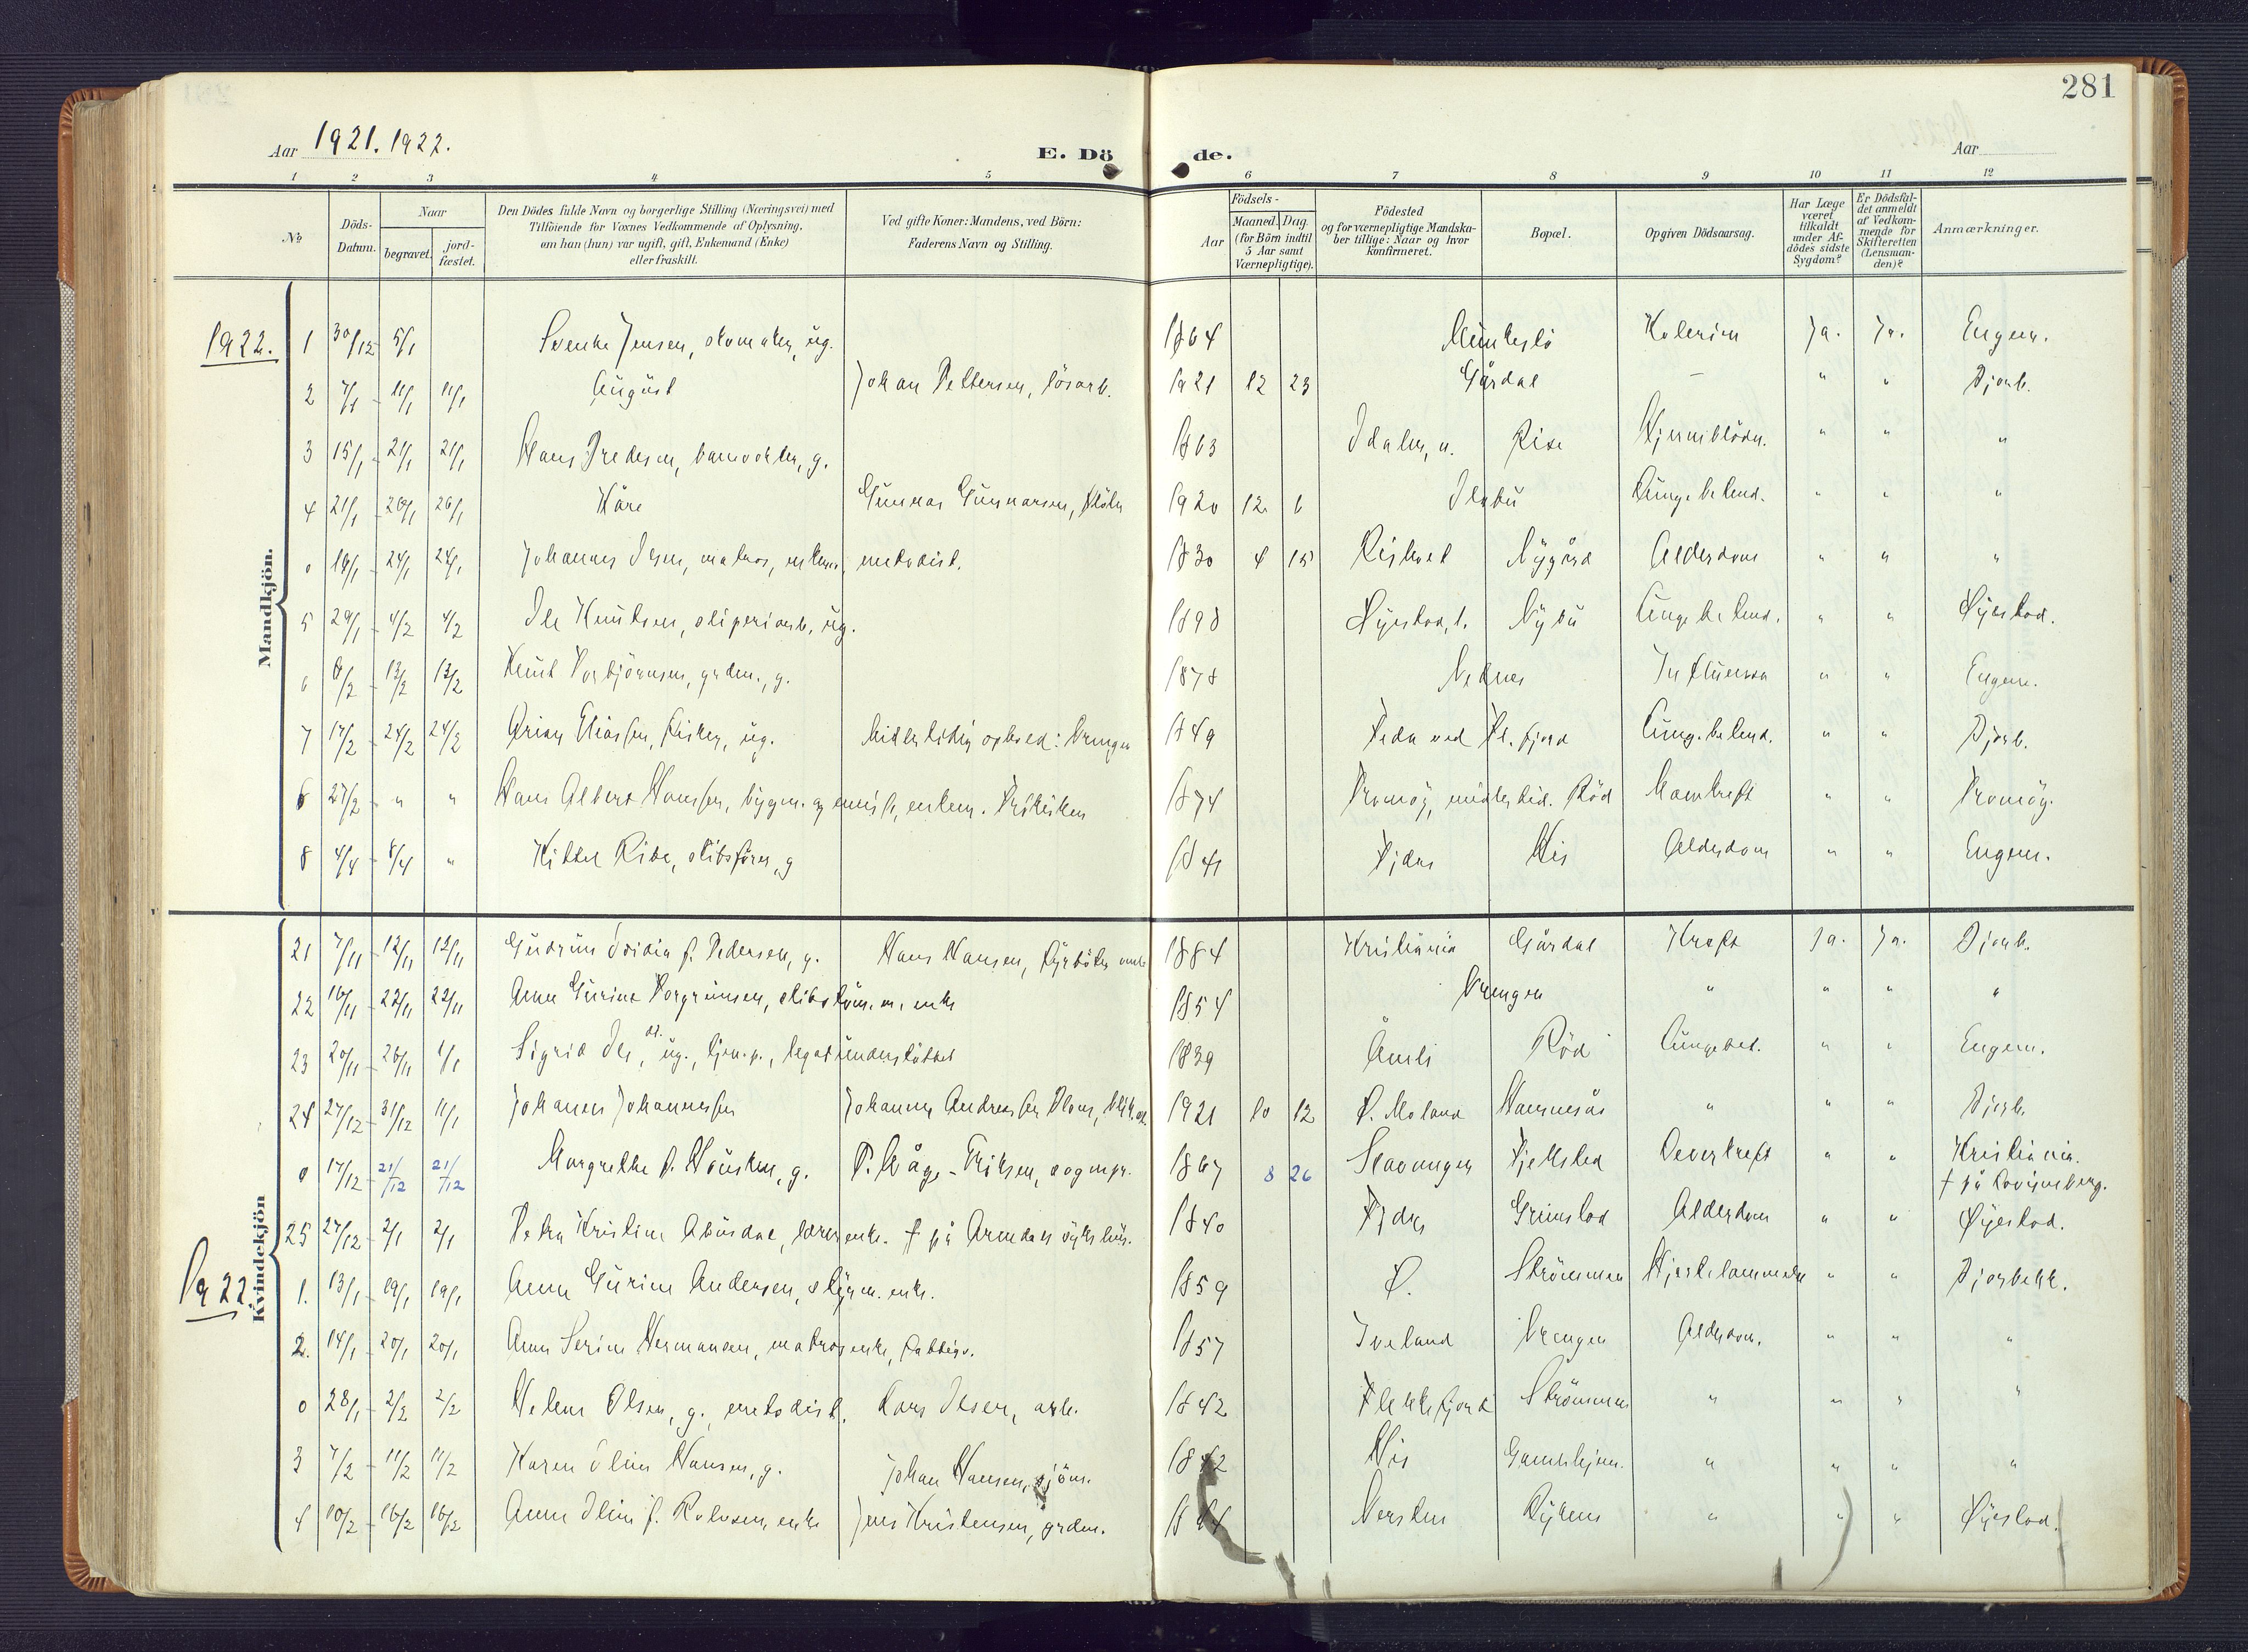 281
Aar 1921. 1922.
E. Dö de.
Aar
1 2 3 4 5 6 7 8 9 10 11 12
№
Döds-Datum.
Naar
begravet.
jord-fæstet.
Den Dödes fulde Navn og borgerlige Stilling (Næringsvei) med
Tilföiende for Voxnes Vedkommende af Oplysning,
om han (hun) var ugift, gift, Enkemand (Enke)
eller fraskilt.
Ved gifte Koner: Mandens, ved Börn:
Faderens Navn og Stilling.
Födsels-
Aar
Maaned. Dag.
(for Börn indtil
5 Aar samt
Værnepligtige).
Födested
og for værnepligtige Mandska-
ber tillige: Naar og hvor
konfirmeret.
Bopæl.
Opgiven Dödsaarsag.
Har Læge
været
tilkaldt
under Af-
dödes sidste
Sygdom?
Er Dödsfal-
det anmeldt
af Vedkom-
mende for
Skifteretten
(Lensman-
den)?
Anmærkninger.
Mandkjön.
1922. 1 30/12 5/1 Svenke Jensen, skomaker, ug. 1864 Munkeslö Kolerin Ja. Ja. Engen.
2 7/1 11/1 11/1 August Johan Pettersen, lösarb. 1921 12 23 Gårdal – " " Bjorb.
3 15/1 21/1 21/1 Hans Fredesen, banevokter, g. 1863 Rise Hjerneblödn. " " "
4 21/1 26/1 26/1 Kåre Gunnar Gunnarsen, 1920 12 6 Lungebetend. " " "
0 18/1 24/1 24/1 Johannes Olsen, matros, enkem. metodist. 1830 4 15 Nygård Alderdom " " "
5 29/1 4/2 4/2 Ole Knutsen, sliperiarb., ug. 1898 Öyestad, Nybu Lungebetend. " " Öyestad.
6 8/2 13/2 13/2 Knut Torbjörnsen, grdm., g. 1878 Nednes Influensa " " Engene.
7 17/2 24/2 24/2 Eliassen, fisker, ug. Midlertidig ophold: Vrengen 1849 Feda ved Fl. fjord Lung. betend. " " Bjorb.
6 27/2 " " Hans Albert Hanssen, bygm. og enkem. 1874 Tromöy, midlertid. Röd Mavekreft " " Tromöy.
8 4/4 8/4 " Kittel Ribe, skibsförer, g 1841 Fjære His Alderdom " " Engene.
Kvindekjön
21 7/11 12/11 12/11 Gudrun f. Pedersen, g. Hans Hansen, fyrböter 1884 Kristiania Gårdal Kreft Ja. Ja. Bjorb.
22 16/11 22/11 22/11 Anne Gurine Torgrimsen, enke 1854 Vrengen " " " "
23 20/11 26/11 1/1 Sigrid Ols. dt. ug., tjen.p., legatunderstöttet 1839 Åmli Röd Lungebet. " " Engene.
24 27/12 31/12 11/1 Johanne Johannessen Johannes Andreassen 1921 10 12 Ö. Moland " " " Bjorb.
0 17/12 21/12 21/12 Margrethe f. Housken, g. P. Våge-Eriksen, sognepr. 1867 8 26 Stavanger Fjellstad Leverkreft " " Kristiania.
† på Lovisenberg.
25 27/12 2/1 2/1 Petra Kristine Abusdal, lærerenke. † på Arendals sykehus. 1840 Fjære Grimstad Alderdom " " Öyestad.
1922. 1. 13/1 19/1 19/1 Anne Gurine Andersen, styrm. enke. 1859 Ö. Strömmen Hjertelammelse " " Bjorbekk.
2. 14/1 20/1 20/1 Anne Serine Hermansen, matrosenke, fattigv. 1857 Iveland Vrengen Alderdom. " " "
0 28/1 2/2 2/2 Helene Olsen, g., metodist. Lars Olsen, arb. 1842 Flekkefjord Strömmen " " " "
3 7/2 11/2 11/2 Karen Oline Hansen, g. Johan Hansen, sjöm. 1842 His Gamlehjem. " " " "
4 10/2 16/2 16/2 Anne Oline f. Rolvsen, enke Jens Kristensen, grdm. 1844 Nersten Rykene " " " Öyestad.